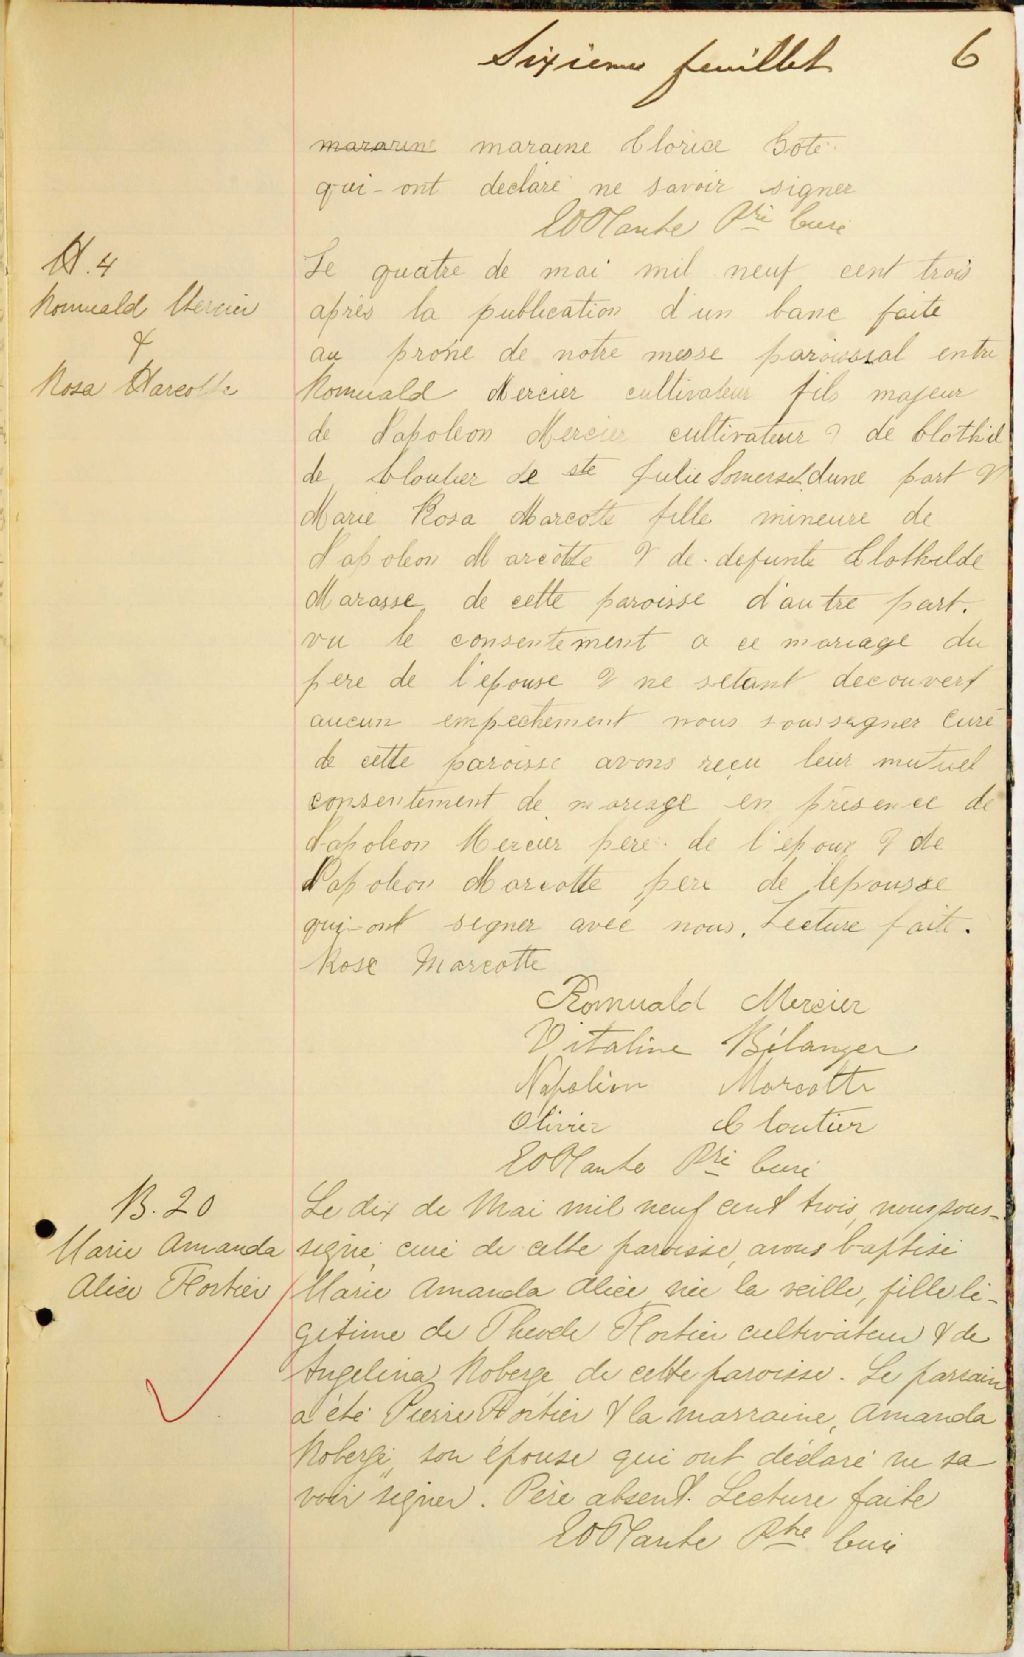 Sixieme feuillet 6
mararine maraine Clorice Coté
qui-ont declaré ne savoir signer
EOPlante Ptre Curé
M. 4
Romuald Mercier
&
Rosa Marcotte
Le quatre de mai mil neuf cent trois
après la publication d'un banc faite
au prone de notre messe paroissial entre
Romuald Mercier cultivateur fils majeur
de Napoleon Mercier cultivateur & de Clothil
de Cloutier de ste Julie Somerset dune part &
Marie Rosa Marcotte fille mineure de
Napoleon Marcotte & de defunte Clothilde
Marasse de cette paroisse d'autre part.
vu le consentement a ce mariage du
pere de l'epouse & ne setant decouvert
aucun empechement nous soussigner Curé
de cette paroisse avons reçu leur mutuel
consentement de mariage en présence de
Napoleon Mercier pere de l'epoux & de
Napoleon Marcotte pere de lepousse
qui-ont segner avec nous. Lecture faite.
Rose Marcotte
Romuald Mercier
Vitaline Bélanger
Napoléon Marcotte
Olivier Cloutier
EOPlante Ptre Curé
B. 20
Marie Amanda
Alice Fortier
Le dix de Mai mil neuf cent trois, nous sous-
signé, curé de cette paroisse, avons baptisé
Marie Amanda Alice née la veille, fille lé-
gitime de Fortier cultivateur & de
Angelina Roberge de cette paroisse. Le parrain
a été Pierre Fortier & la marraine, Amanda
Roberge, son épouse qui ont déclaré ne sa
voir signer. Père absent. Lecture faite
EOPlante Ptre Curé